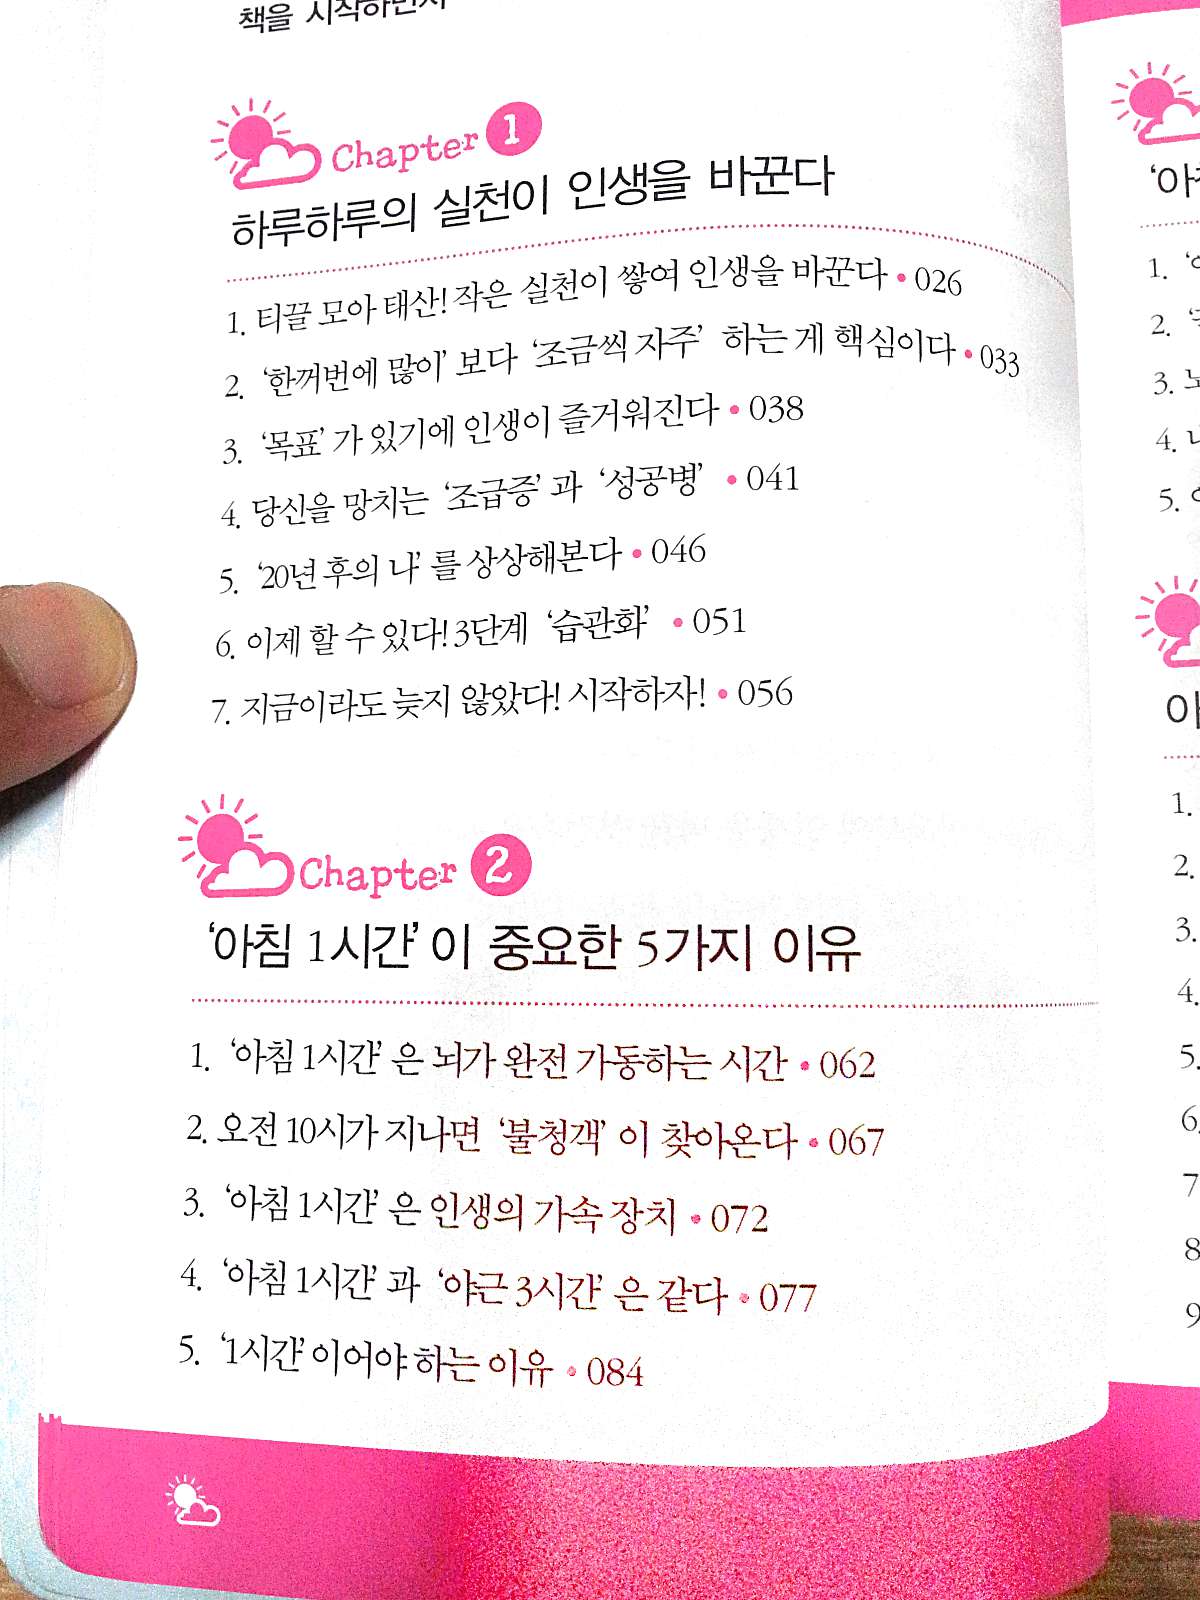 책을 시작하면서
Chapter 1
하루하루의 실천이 인생을 바꾼다
1. 티끌 모아 태산! 작은 실천이 쌓여 인생을 바꾼다 • 026
2. ‘한꺼번에 많이’ 보다 ‘조금씩 자주’ 하는 게 핵심이다 • 033
3. ‘목표’ 가 있기에 인생이 즐거워진다 • 038
4. 당신을 망치는 ‘조급증’ 과 ‘성공병’ • 041
5. ‘20년 후의 나’ 를 상상해본다 • 046
6. 이제 할 수 있다! 3단계 ‘습관화’ • 051
7. 지금이라도 늦지 않았다! 시작하자! • 056
Chapter 2
‘아침 1시간’ 이 중요한 5가지 이유
1. ‘아침 1시간’ 은 뇌가 완전 가동하는 시간 • 062
2. 오전 10시가 지나면 ‘불청객’ 이 찾아온다 • 067
3. ‘아침 1시간’ 은 인생의 가속 장치 • 072
4. ‘아침 1시간’ 과 ‘야근 3시간’ 은 같다 • 077
5. ‘1시간’ 이어야 하는 이유 • 084
1.
2.
3.
4.
5.
1.
2.
3.
4.
5.
6.
7
8
9